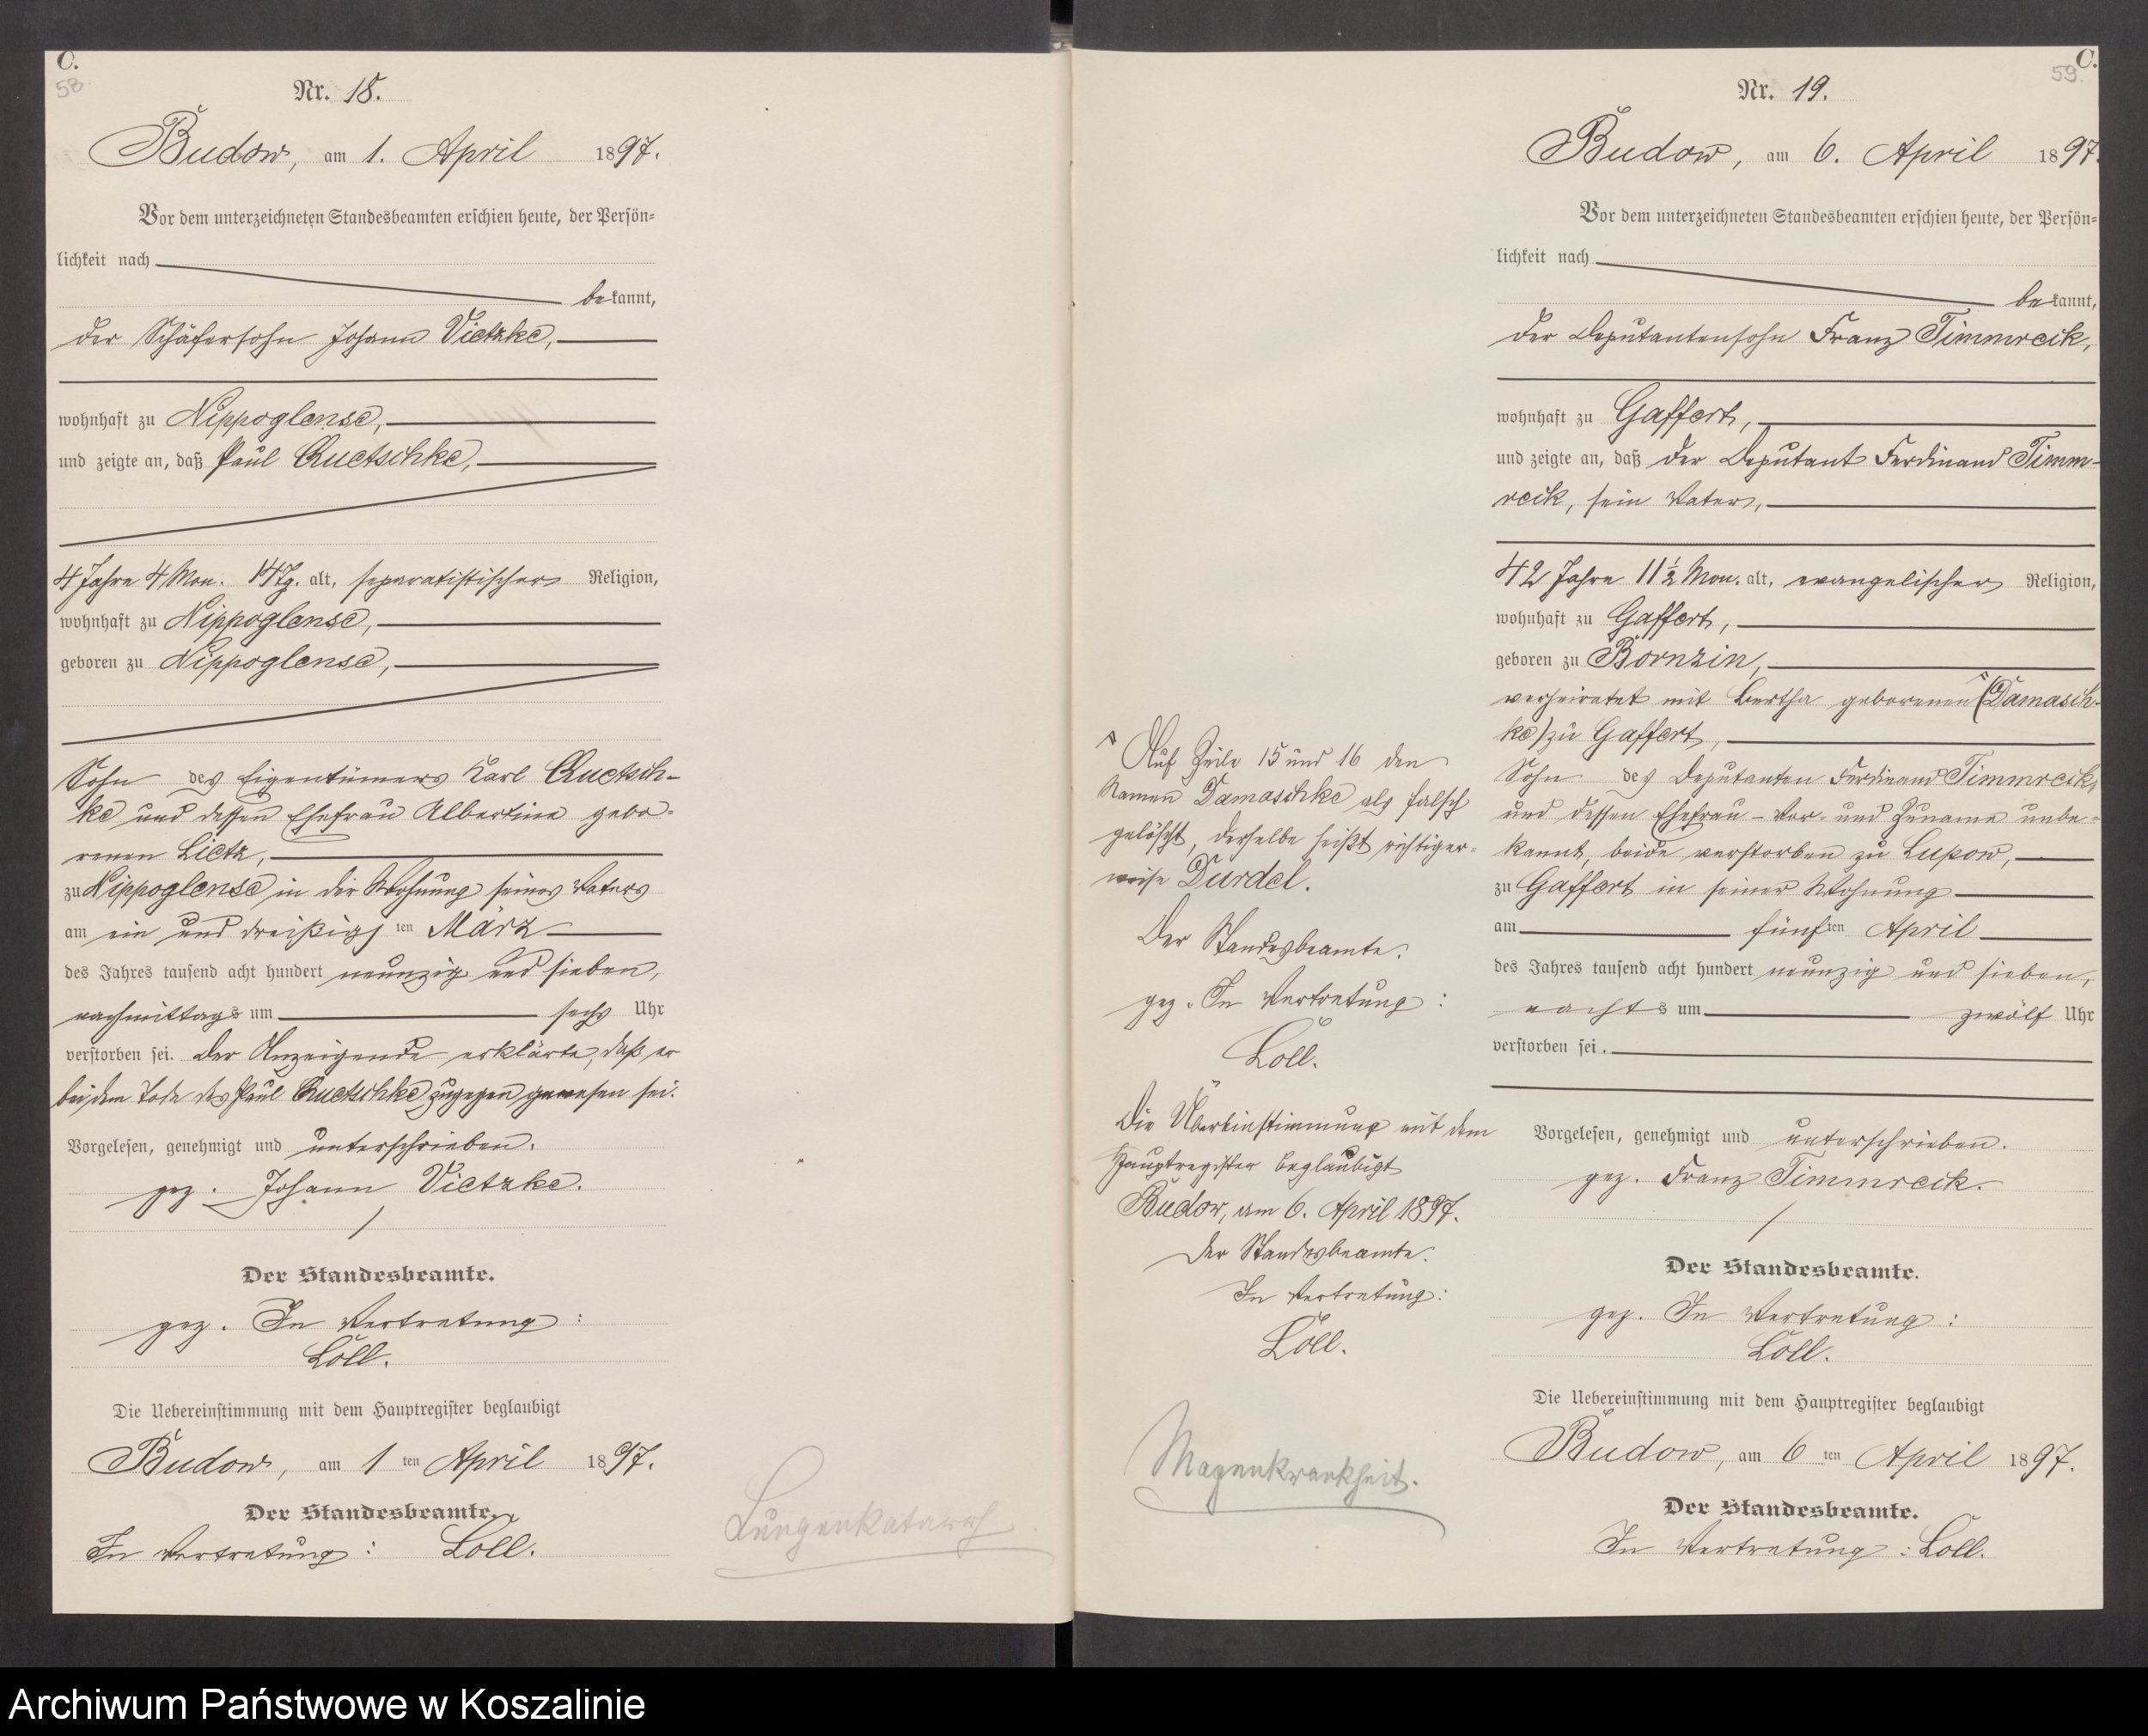 C.
58.
Nr. 18.
Budow, am 1. April 1897.
Vor dem unterzeichneten Standesbeamten erschien heute, der Persön=
lichkeit nach
bekannt,
der Schäfersohn Johann Vietzke,
wohnhaft zu Nippoglense,
und zeigte an, daß Paul Quetschke,
4 Jahre 4 Mon. 14 Tg. alt, separatistischer Religion,
wohnhaft zu Nippoglense,
geboren zu Nippoglense,
Sohn des Eigentümers Karl Quetsch-
ke und dessen Ehefrau Albertine gebo=
renen Lietz,
zu Nippoglense in der Wohnung seines Vaters
am ein und dreißigsten März
des Jahres tausend acht hundert neunzig und sieben,
nachmittags um sechs Uhr
verstorben sei. Der Anzeigende erklärte, daß er
bei dem Tode des Paul Quetschke zugegen gewesen sei.
Vorgelesen, genehmigt und unterschrieben.
gez. Johann Vietzke.
Der Standesbeamte.
gez. In Vertretung:
Löll.
Die Uebereinstimmung mit dem Hauptregister beglaubigt
Budow, am 1ten April 1897.
Der Standesbeamte.
In Vertretung: Löll.
Lungenkatarrh
C.
59.
Nr. 19.
Budow, am 6. April 1897.
Vor dem unterzeichneten Standesbeamten erschien heute, der Persön=
lichkeit nach
bekannt,
der Deputantensohn Franz Timmreck,
wohnhaft zu Gaffert,
und zeigte an, daß der Deputant Ferdinand Timm-
reck, sein Vater,
42 Jahre 11½ Mon. alt, evangelischer Religion,
wohnhaft zu Gaffert,
geboren zu Bornzin,
verheiratet mit Bertha geborenen (Damasch-
ke) zu Gaffert,
Sohn des Deputanten Ferdinand Timmreck,
und dessen Ehefrau - Vor- und Zuname unbe=
kannt, beide verstorben zu Lupow,
zu Gaffert in seiner Wohnung
am fünften April
des Jahres tausend acht hundert neunzig und sieben,
nachts um zwölf Uhr
verstorben sei.
Vorgelesen, genehmigt und unterschrieben.
gez. Franz Timmreck.
Der Standesbeamte.
gez. In Vertretung:
Löll.
Die Uebereinstimmung mit dem Hauptregister beglaubigt
Budow, am 6ten April 1897.
Der Standesbeamte.
In Vertretung: Löll.
Auf Zeile 15 und 16 den
Namen Damaschke als falsch
gelöscht, derselbe heißt richtiger=
weise Durdel.
Der Standesbeamte.
gez. In Vertretung:
Löll.
Die Übereinstimmung mit dem
Hauptregister beglaubigt
Budow, am 6. April 1897.
Der Standesbeamte.
In Vertretung:
Löll.
Magenkrankheit.
Archiwum Państwowe w Koszalinie